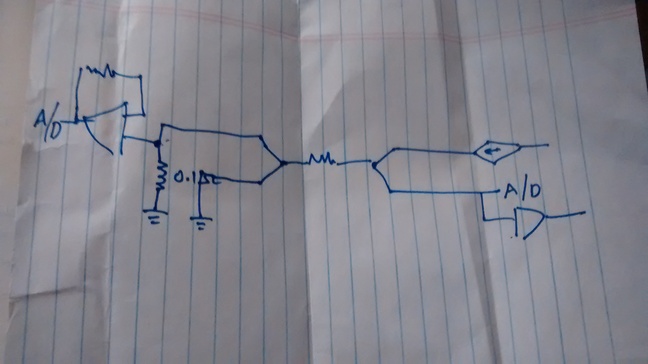 A/D
0.1
A/D